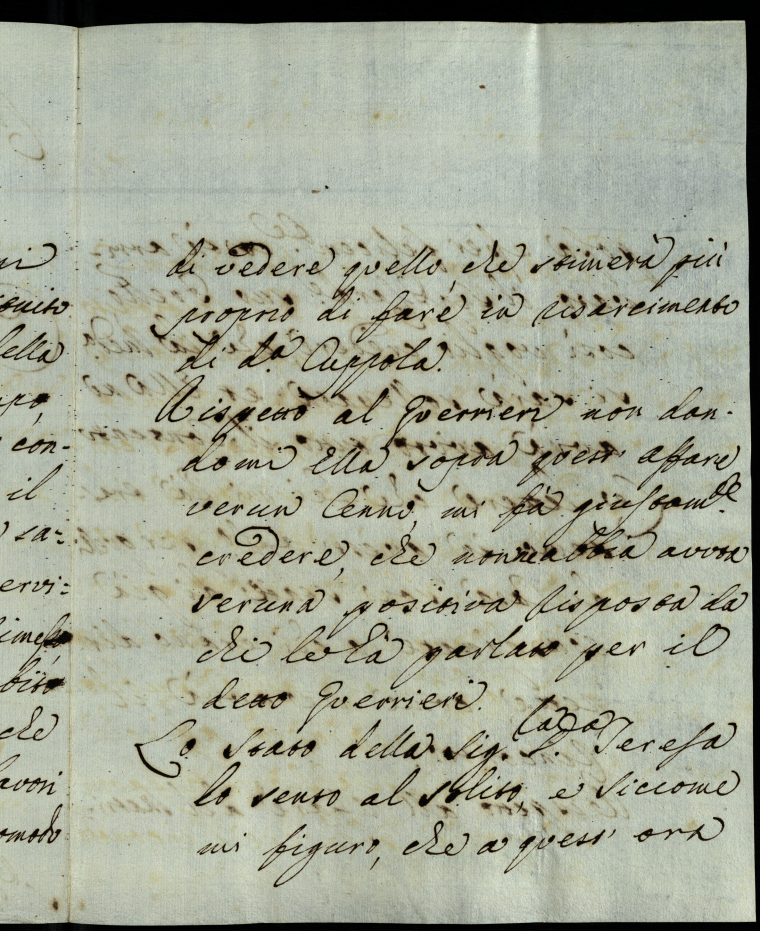 di vedere quello, che stimerà più
proprio di fare in risarcimento
di d.ª Cuppola.
Rispetto al Guerrieri non dan-
domi Ella sopra quest' affare
verun Cenno, mi fà giustam.te
credere, che non abbia avuta
veruna positiva risposta da
chi le hà parlato per il
detto Guerrieri.
Lo stato della Sig.ra D.a Teresa
lo sento al solito, e siccome
mi figuro, che a quest' ora
ella
con-
il
sa-
ervi-
che
avori
omodo